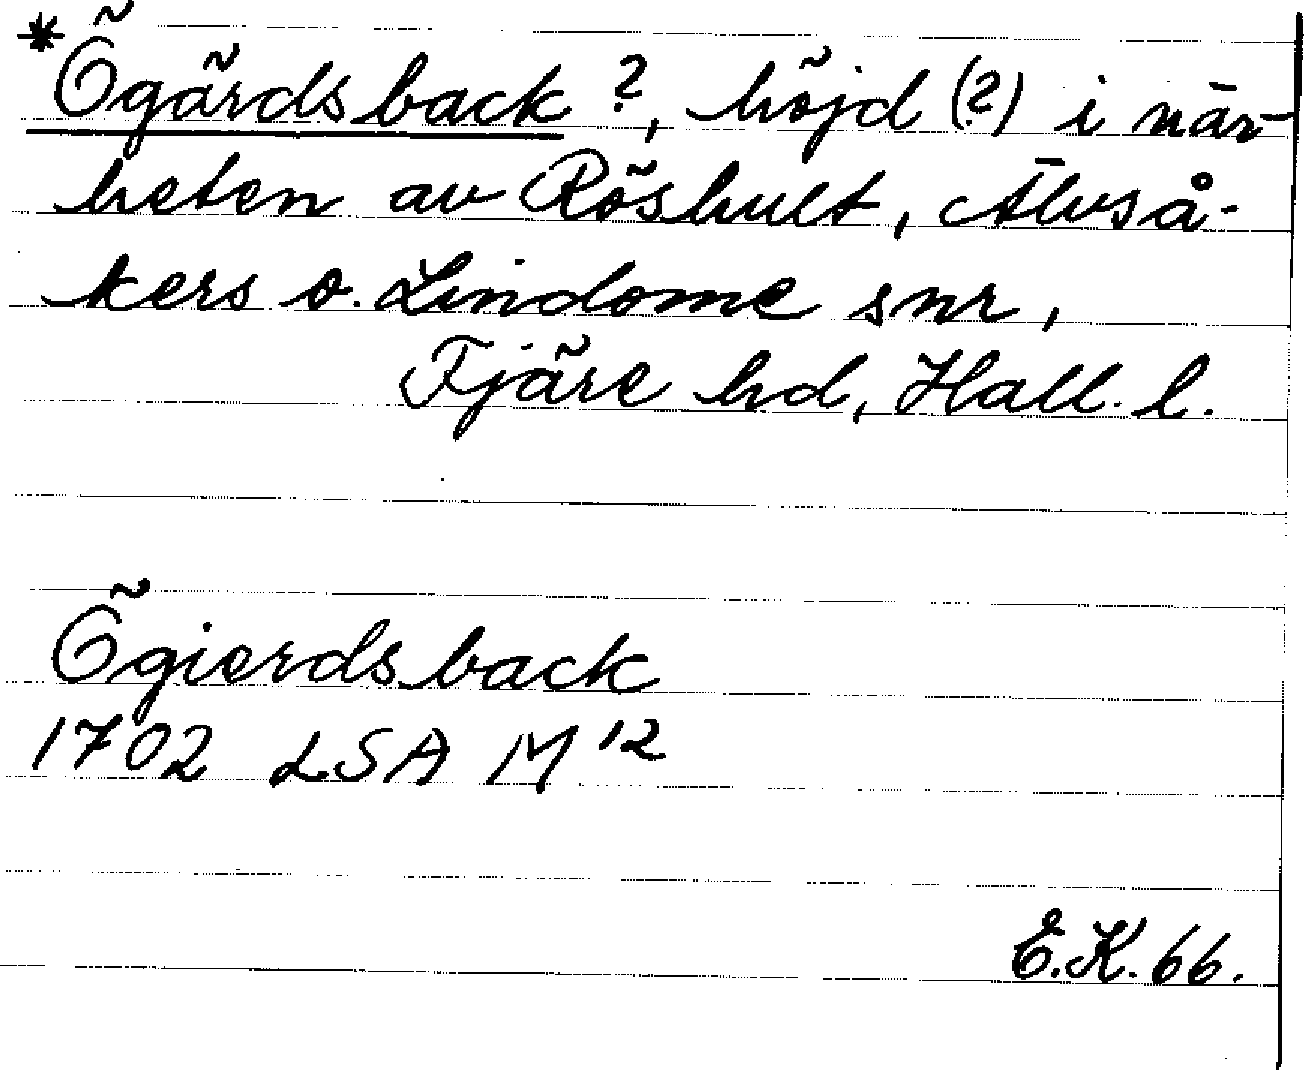 *Ögärdsback ?, höjd (?) i när-
heten av Röshult, Älvså-
kers o. Lindome snr,
Fjäre hd, Hall. l.
Ögierdsback
1702 LSA M 12
E.K. 66.